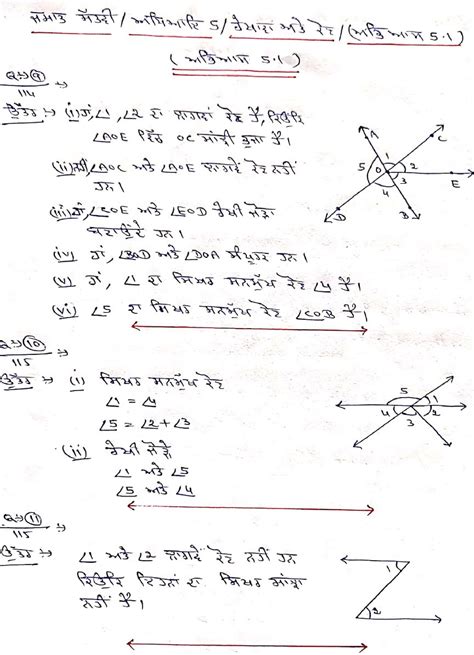 ਜਮਾਤ ਸੱਤਵੀਂ / ਅਧਿਆਇ 5 / ਰੇਖਾਵਾਂ ਅਤੇ ਕੋਣ / (ਅਭਿਆਸ 5.1)
(ਅਭਿਆਸ 5.1)
Q→(9)
114
ਉੱਤਰ→ (i) ਹਾਂ, ∠1, ∠2 ਦਾ ਲਾਗਵਾਂ ਕੋਣ ਹੈ, ਕਿਉਂਕਿ
∠AOE ਵਿੱਚ OC ਸਾਂਝੀ ਭੁਜਾ ਹੈ।
(ii) ਨਹੀਂ, ∠AOC ਅਤੇ ∠AOE ਲਾਗਵੇਂ ਕੋਣ ਨਹੀਂ
ਹਨ।
(iii) ਹਾਂ, ∠COE ਅਤੇ ∠EOD ਰੇਖੀ ਜੋੜਾ
ਬਣਾਉਂਦੇ ਹਨ।
(iv) ਹਾਂ, ∠BOD ਅਤੇ ∠DOA ਸੰਪੂਰਕ ਹਨ।
(v) ਹਾਂ, ∠1 ਦਾ ਸਿਖਰ ਸਨਮੁੱਖ ਕੋਣ ∠4 ਹੈ।
(vi) ∠5 ਦਾ ਸਿਖਰ ਸਨਮੁੱਖ ਕੋਣ ∠COB ਹੈ।
A
C
5 1 2
O 3 E
4
D B
Q→(10)→
115
ਉੱਤਰ→ (i) ਸਿਖਰ ਸਨਮੁੱਖ ਕੋਣ
∠1 = ∠4
∠5 = ∠2+∠3
(ii) ਰੇਖੀ ਜੋੜੇ
∠1 ਅਤੇ ∠5
∠5 ਅਤੇ ∠4
5 1
4 3 2
Q→(11)→
115
ਉੱਤਰ→ ∠1 ਅਤੇ ∠2 ਲਾਗਵੇਂ ਕੋਣ ਨਹੀਂ ਹਨ
ਕਿਉਂਕਿ ਇਹਨਾਂ ਦਾ ਸਿਖਰ ਸਾਂਝਾ
ਨਹੀਂ ਹੈ।
1
2